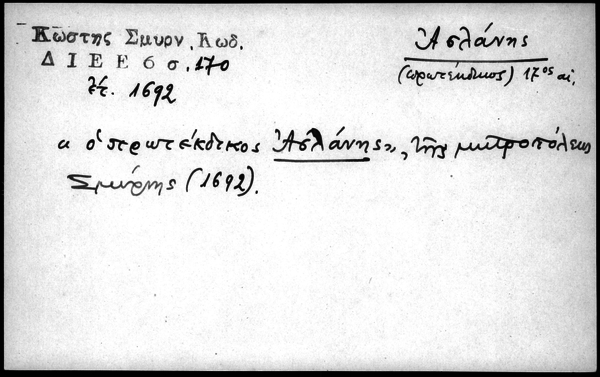 Κωστης Σμυρν. Κωδ.
Δ Ι Ε Ε 6 σ. 170
ἔτ. 1692
Ἀσλάνης
(πρωτέκδικος) 17ος αἰ.
« ὁ πρωτέκδικος Ἀσλάνης», τῆς μητροπόλεως
Σμύρνης (1692).